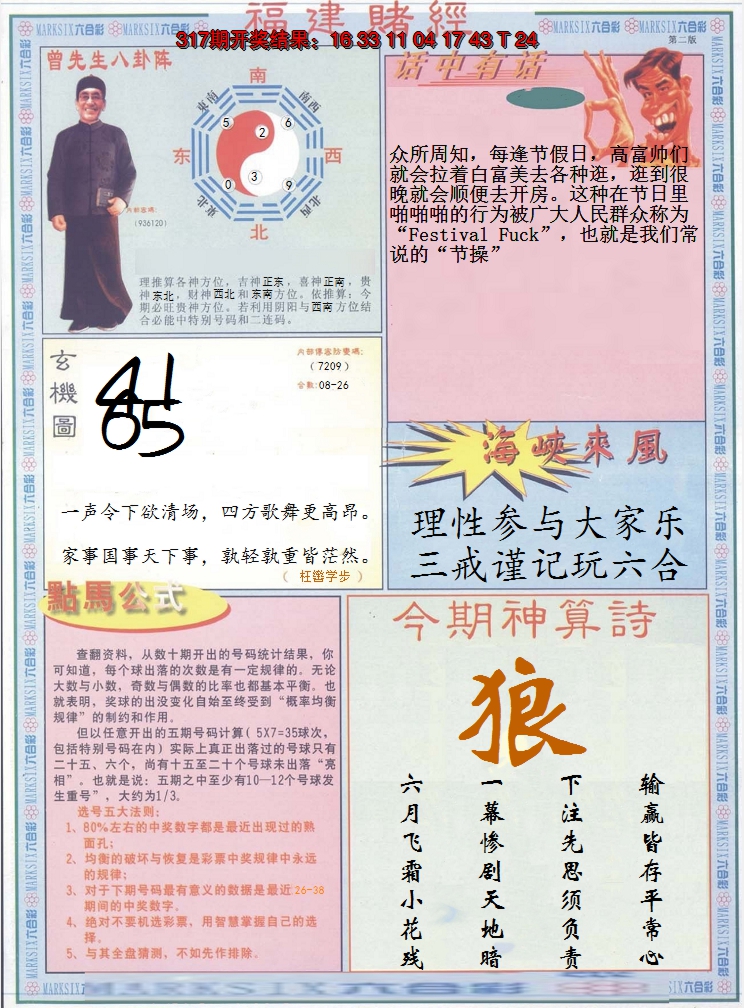 福建賭經
317期开奖结果：16 33 11 04 17 43 T 24
第二版
曾先生八卦阵
南
东南
西南
5
6
2
东
西
3
0
9
东北
西北
北
内部密碼:
(936120)
理推算各神方位，吉神正东，喜神正南，贵
神东北，财神西北和东南方位。依推算：今
期必旺贵神方位。若利用阴阳与西南方位结
合必能中特别号码和二连码。
话中有话
众所周知，每逢节假日，高富帅们
就会拉着白富美去各种逛，逛到很
晚就会顺便去开房。这种在节日里
啪啪啪的行为被广大人民群众称为
“Festival Fuck”，也就是我们常
说的“节操”
玄機圖
41
65
内部傳密防變碼:
(7209)
合数:08-26
一声令下欲清场，四方歌舞更高昂。
家事国事天下事，孰轻孰重皆茫然。
海峽來風
理性参与大家乐
三戒谨记玩六合
點馬公式
查翻资料，从数十期开出的号码统计结果，你
可知道，每个球出落的次数是有一定规律的。无论
大数与小数，奇数与偶数的比率也都基本平衡。也
就表明，奖球的出没变化自始至终受到“概率均衡
规律”的制约和作用。
但以任意开出的五期号码计算( 5X7=35球次，
包括特别号码在内) 实际上真正出落过的号球只有
二十五、六个，尚有十五至二十个号球未出落“亮
相”。也就是说：五期之中至少有10—12个号球发
生重号”，大约为1/3。
选号五大法则：
1、80%左右的中奖数字都是最近出现过的熟
面孔；
2、均衡的破坏与恢复是彩票中奖规律中永远
的规律；
3、对于下期号码最有意义的数据是最近26-38
期间的中奖数字。
4、绝对不要机选彩票，用智慧掌握自己的选
择。
5、与其全盘猜测，不如先作排除。
今期神算詩
狼
输赢皆存平常心
下注先思须负责
一幕惨剧天地暗
六月飞霜小花残